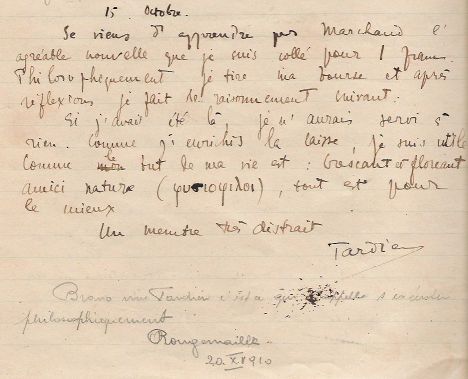 15 Octobre.
Je viens d'apprendre par Marchand l'
agréable nouvelle que je suis collé pour 1 franc
Philosophiquement je tire ma bourse et après
réflexions je fait le raisonnement suivant.
Si j'avais été là, je n'aurais servi à
rien. Comme j'enrichis la caisse, je suis utile
Comme le but de ma vie est : Crescant et floreant
amici naturæ (φυσιοφιλοι), tout est pour
le mieux
Un membre très distrait
Tardieu
Bravo mon Tardieu c'est ce qui s'appelle s'exécuter
philosophiquement
Rougemaille
20 XI 1910